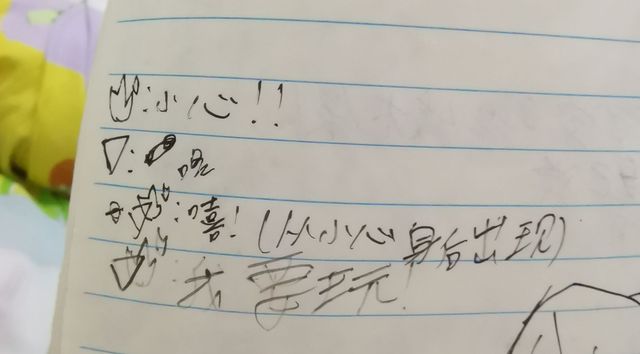 :小心!!
:咯
:嘻!(从小心身后出现)
:我要玩